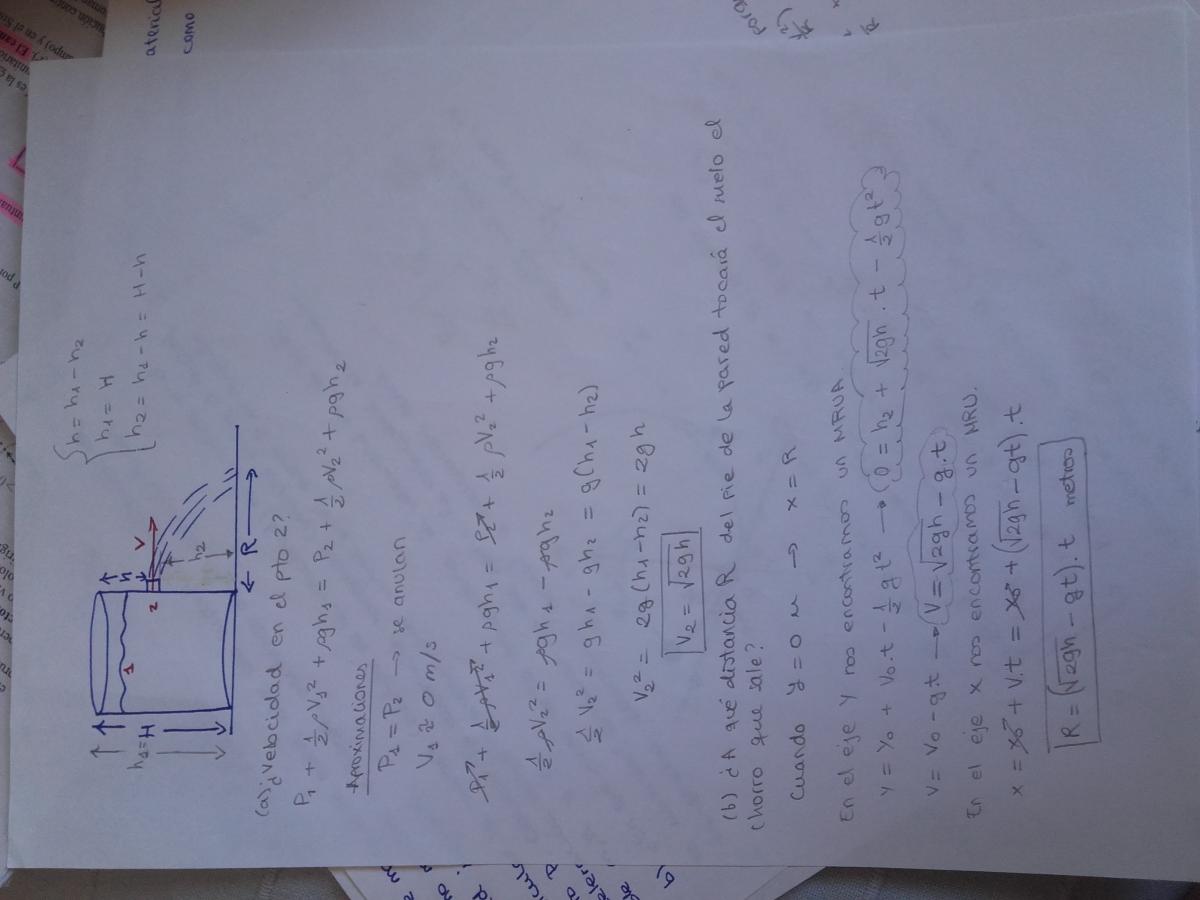 h = h1 - h2
h1 = H
h2 = h1 - h = H - h
h1 = H
1
h
2
V
h2
R
(a) ¿Velocidad en el pto 2?
P1 + 1/2 ρV1² + ρgh1 = P2 + 1/2 ρV2² + ρgh2
Aproximaciones
P1 = P2 → se anulan
V1 ≈ 0 m/s
P1 + 1/2 ρV1² + ρgh1 = P2 + 1/2 ρV2² + ρgh2
1/2 ρV2² = ρgh1 - ρgh2
1/2 V2² = gh1 - gh2 = g(h1 - h2)
V2² = 2g(h1-h2) = 2gh
V2 = √2gh
(b) ¿A qué distancia R del pie de la pared tocará el suelo el
chorro que sale?
Cuando y = 0 m → x = R
En el eje Y nos encontramos un MRUA.
y = y0 + v0.t - 1/2 gt² → 0 = h2 + √2gh . t - 1/2 gt²
V = V0 - gt → V = √2gh - g.t
En el eje X nos encontramos un MRU.
x = x0 + v.t = x0 + (√2gh - gt).t
R = (√2gh - gt).t metros
atenida
como
El can